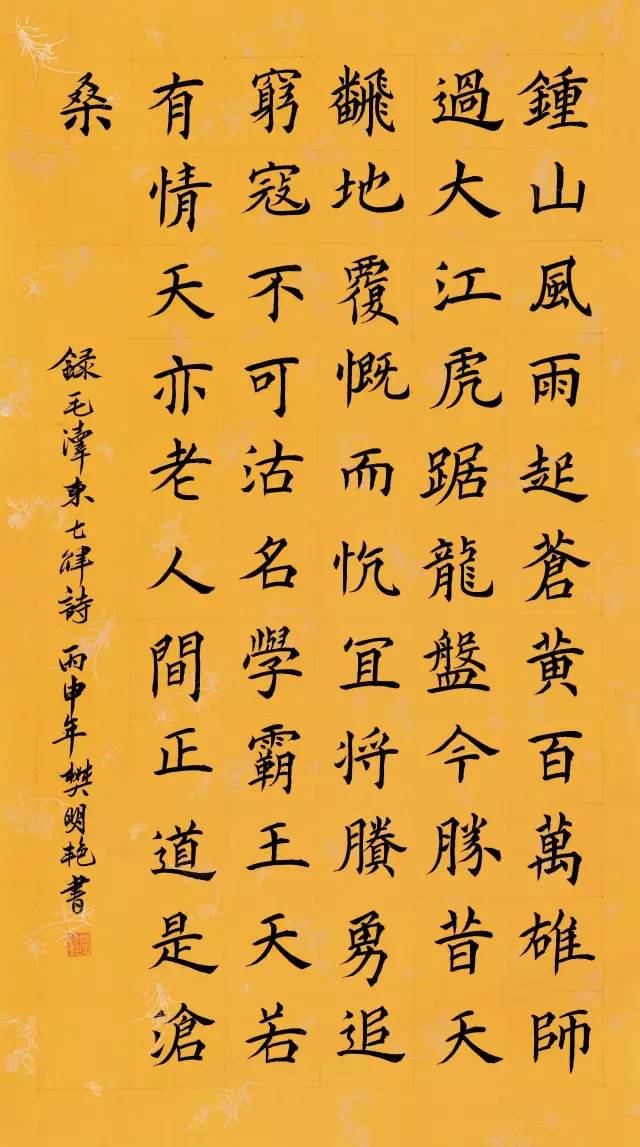 鍾山風雨起蒼黃百萬雄師
過大江虎踞龍盤今勝昔天
飜地覆慨而忼冝将賸勇追
窮寇不可沽名學霸王天若
有情天亦老人間正道是滄
桑
録毛澤東七律詩 丙申年樊明艳書